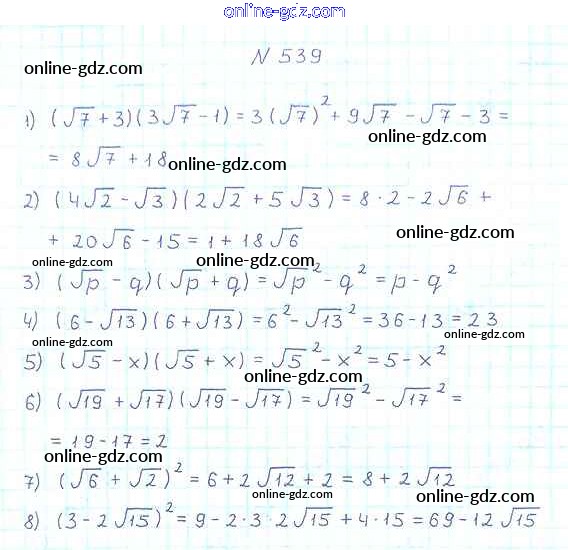 online-gdz.com
N 539
online-gdz.com
1) (√7 + 3)(3√7 - 1) = 3(√7)² + 9√7 - √7 - 3 =
online-gdz.com
= 8√7 + 18
online-gdz.com
2) (4√2 - √3)(2√2 + 5√3) = 8 · 2 - 2√6 +
online-gdz.com
+ 20√6 - 15 = 1 + 18√6
online-gdz.com
3) (√p - q)(√p + q) = √p² - q² = p - q²
online-gdz.com
4) (6 - √13)(6 + √13) = 6² - √13² = 36 - 13 = 23
online-gdz.com
online-gdz.com
5) (√5 - x)(√5 + x) = √5² - x² = 5 - x²
online-gdz.com
6) (√19 + √17)(√19 - √17) = √19² - √17² =
online-gdz.com
= 19 - 17 = 2
online-gdz.com
7) (√6 + √2)² = 6 + 2√12 + 2 = 8 + 2√12
online-gdz.com
online-gdz.com
8) (3 - 2√15)² = 9 - 2 · 3 · 2√15 + 4 · 15 = 69 - 12√15
online-gdz.com